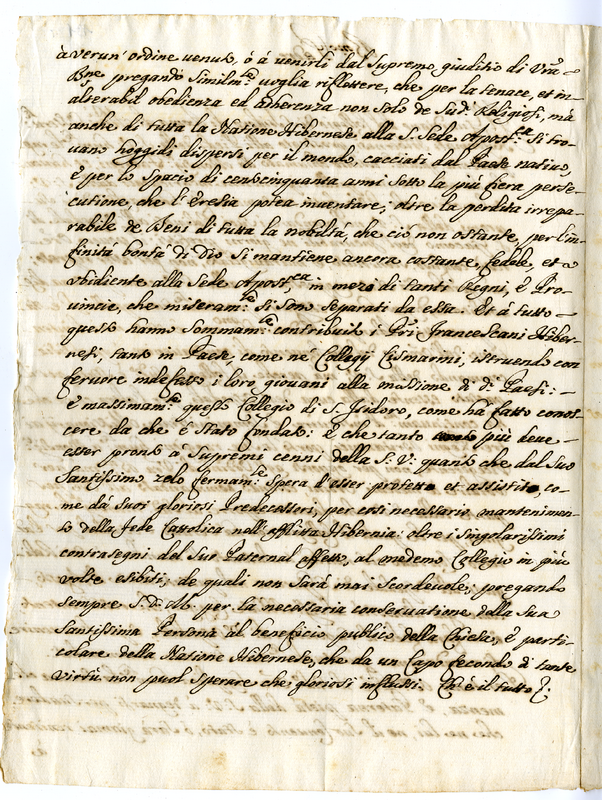 à verun' ordine venuto, ó á venirli dal Supremo giuditio di Vra
Bne pregando similmte voglia riflettere, che per la tenace, et in-
alterabil obedienza ed adherenza non solo de Sud.i Religiosi, mà
anche di tutta la Natione Hibernese alla S. Sede Apost.ca si tro-
vano hoggidi dispersi per il mondo, cacciati dal Paese nativo,
è per lo spacio di centocinquanta anni sotto la più fiera perse-
cutione, che l'Eresia potea inventare; oltre la perdita irrepa-
rabile de Beni di tutta la nobiltà, che ciò non ostante, per l'in-
finità bontà di Dio si mantiene ancora costante, fedele, et
vbidiente alla Sede Apost.ca in mezo di tanti Regni, è Pro-
vincie, che miseramte si sono separati da essa. Et á tutto
questo hanno sommamte contribuito i Pri Francescani Hiber-
nesi, tanto in Paese, come nè Collegij Cismarini, istruendo con
fervore indefesso i loro giovani alla missione di d.i Paesi:
è massimamte questo Collegio di S. Isidoro, come ha fatto conos-
cere da che è stato fondato: è che tanto più deve
esser pronto á supremi cenni della S. V: quanto che dal suo
santissimo zelo fermamte spera d'esser protetto et assistito, co-
me dà suoi gloriosi Predecessori, per così necessario mantenimen-
to della fede Cattolica nell'afflitta Hibernia: oltre i singolarissimi
contrasegni del sur Paternal affetto, al medemo Collegio in più
volte esibiti, de quali non sarà mai scordevole, pregando
sempre S. D. M. per la necessaria conservatione della sua
Santissima Persona ál beneficio publico della Chiesa, è parti-
colare della Natione Hibernese, che da un Capo fecondo di tante
virtù non puol sperare che gloriosi influssi. Ch' è il tutto